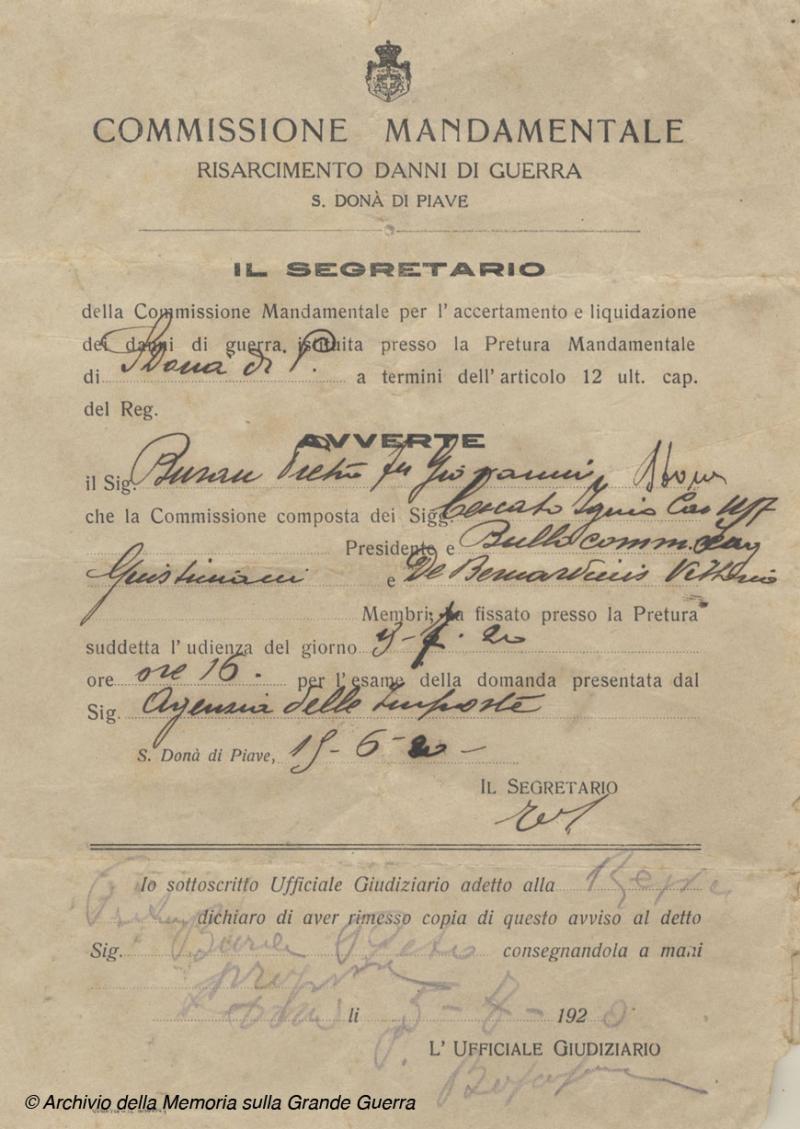 COMMISSIONE MANDAMENTALE
RISARCIMENTO DANNI DI GUERRA
S. DONÀ DI PIAVE
IL SEGRETARIO
della Commissione Mandamentale per l'accertamento e liquidazione
dei danni di guerra, istituita presso la Pretura Mandamentale
di SDona di P. a termini dell'articolo 12 ult. cap.
del Reg.
AVVERTE
il Sig. Pietro fu Giovanni,
che la Commissione composta dei Sigg.
Presidente e Bullo comm.
Giustiniani e De Bernardinis Vittorio
Membri; ha fissato presso la Pretura
suddetta l'udienza del giorno
ore ore 16. per l'esame della domanda presentata dal
Sig. Agenzia delle Imposte
S. Donà di Piave, 15-6-20-
IL SEGRETARIO
Io sottoscritto Ufficiale Giudiziario adetto alla Regia
Pretura dichiaro di aver rimesso copia di questo avviso al detto
Sig. Pietro consegnandola a mani
proprie
li 192
L'UFFICIALE GIUDIZIARIO
© Archivio della Memoria sulla Grande Guerra